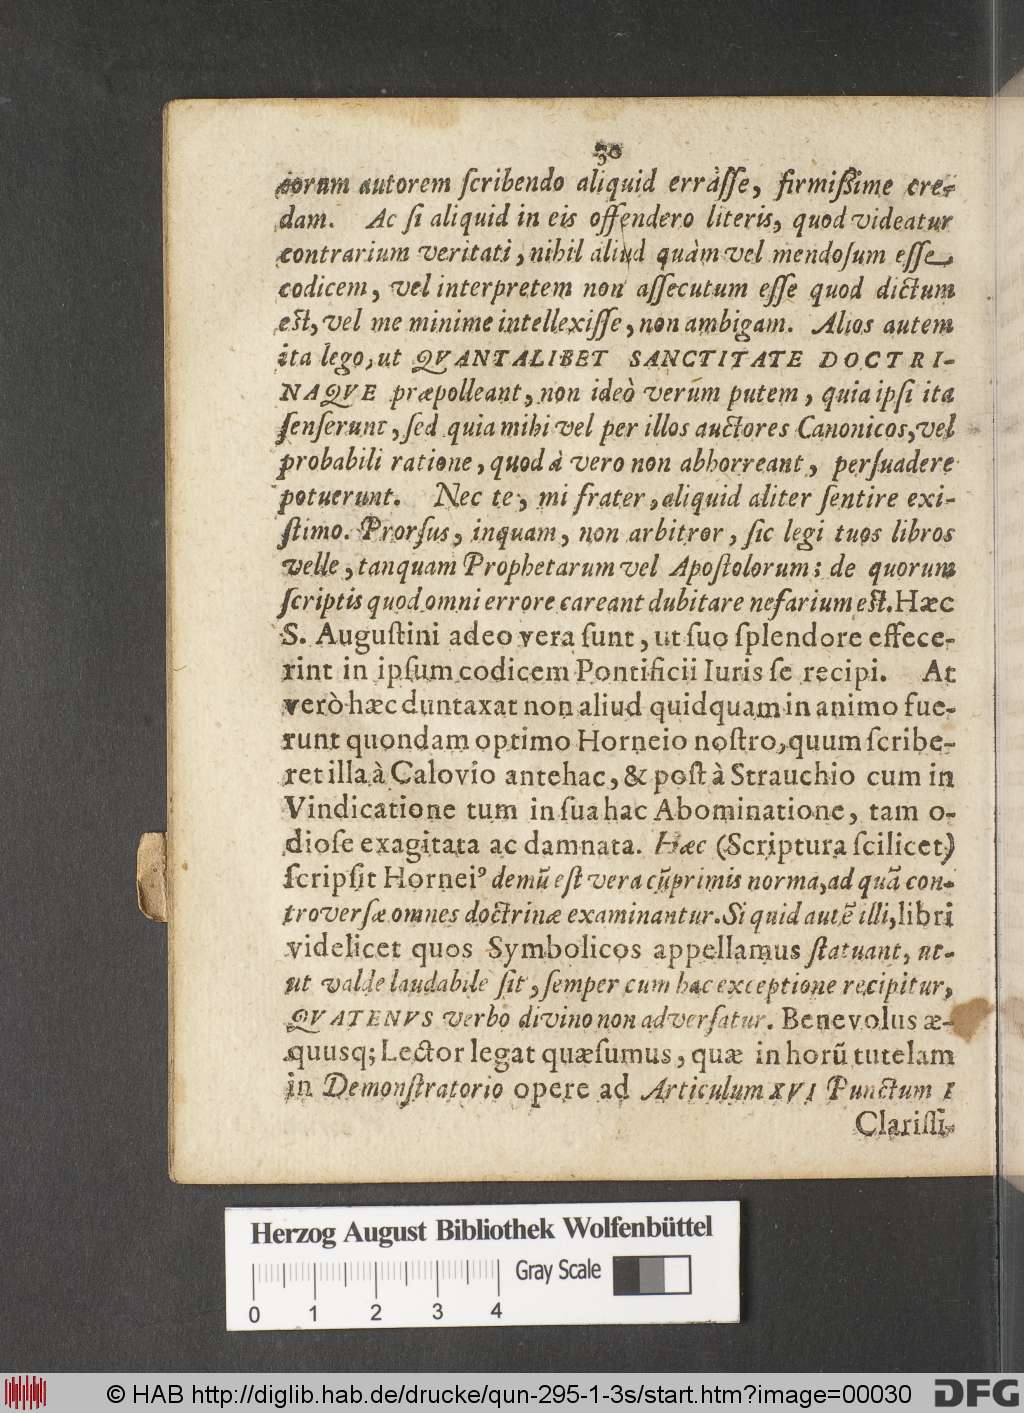 30
eorum autorem ſcribendo aliquid erràſſe, firmiſſime cre-
dam. Ac ſi aliquid in eis offendero literis, quod videatur
contrarium veritati, nihil aliud quàm vel mendoſum eſſe
codicem, vel interpretem non aſſecutum eſſe quod dictum
eſt, vel me minime intellexiſſe, non ambigam. Alios autem
ita lego, ut QVANTALIBET SANCTITATE DOCTRI-
NAQVE præpolleant, non ideò verum putem, quia ipſi ita
ſenſerunt, ſed quia mihi vel per illos auctores Canonicos, vel
probabili ratione, quod à vero non abhorreant, perſuadere
potuerunt. Nec te, mi frater, aliquid aliter ſentire exi-
ſtimo. Prorſus, inquam, non arbitror, ſic legi tuos libros
velle, tanquam Prophetarum vel Apoſtolorum: de quorum
ſcriptis quod omni errore careant dubitare nefarium eſt. Hæc
S. Auguſtini adeo vera ſunt, ut ſuo ſplendore effece-
rint in ipſum codicem Pontificii Iuris ſe recipi. At
verò hæc duntaxat non aliud quidquam in animo fue-
runt quondam optimo Horneio noſtro, quum ſcribe-
ret illa à Calovio antehac, & poſt à Strauchio cum in
Vindicatione tum in ſua hac Abominatione, tam o-
dioſe exagitata ac damnata. Hæc (Scriptura ſcilicet)
ſcripſit Horneiꝰ demũ eſt vera cũprimis norma, ad quã con-
troverſæ omnes doctrinæ examinantur. Si quid autẽ illi, libri
videlicet quos Symbolicos appellamus ſtatuant, ut-
ut valde laudabile ſit, ſemper cum hac exceptione recipitur,
QVATENVS verbo divino non adverſatur. Benevolus æ-
quusq; Lector legat quæſumus, quæ in horũ tutelam
in Demonſtratorio opere ad Articulum XVI Punctum I
Clariſſi-
Herzog August Bibliothek Wolfenbüttel
Gray Scale
0 1 2 3 4
© HAB http://diglib.hab.de/drucke/qun-295-1-3s/start.htm?image=00030
DFG